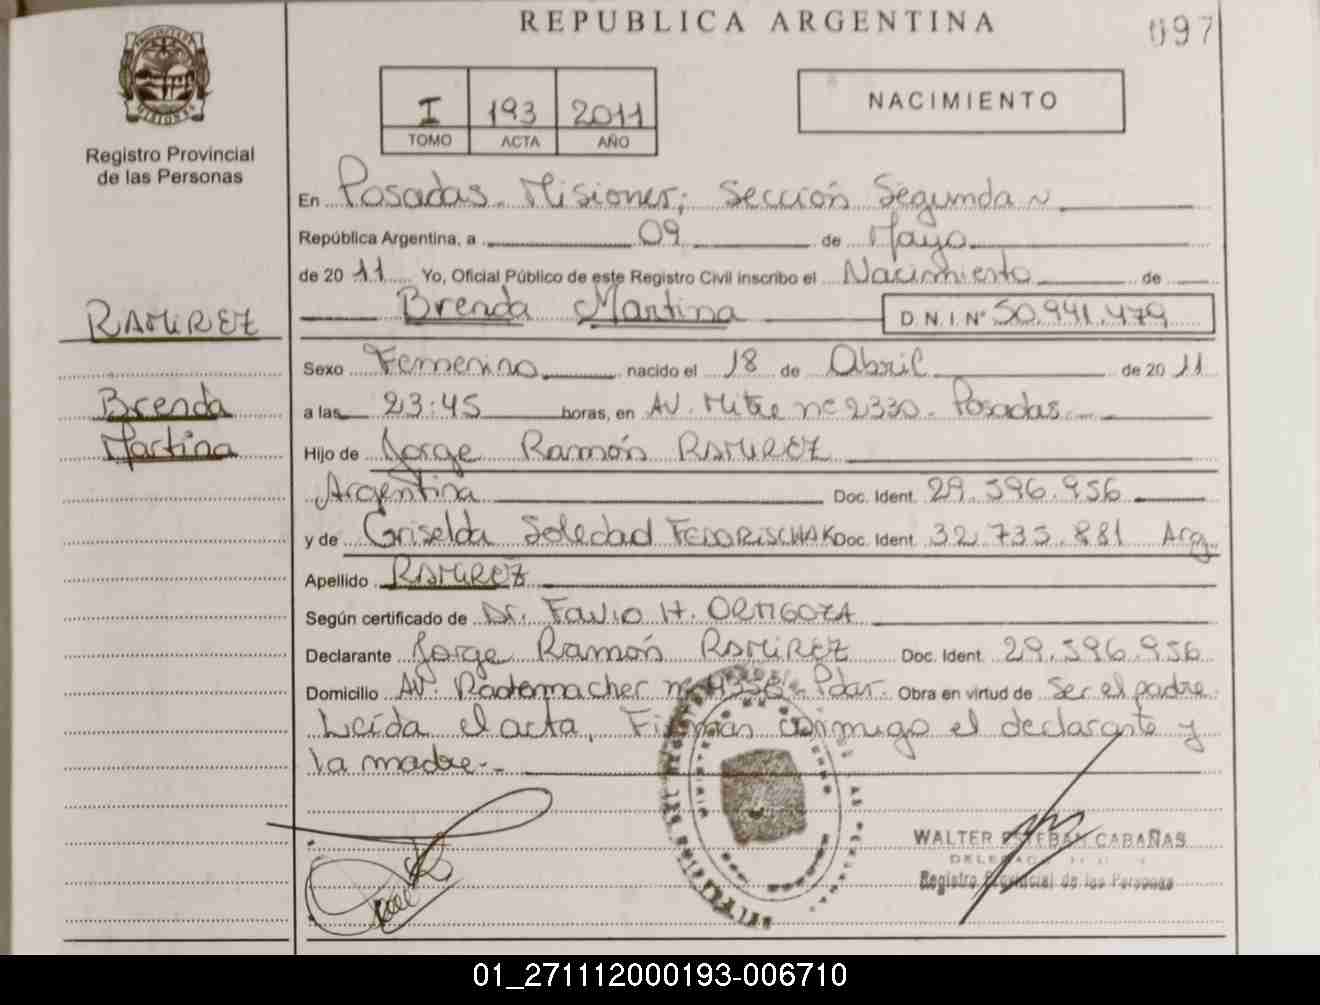 REPUBLICA ARGENTINA
097
Registro Provincial
de las Personas
I 193 2011
TOMO ACTA AÑO
NACIMIENTO
En Posadas. Misiones; Sección Segunda
República Argentina, a 09 de Mayo
de 2011 Yo, Oficial Público de este Registro Civil inscribo el Nacimiento de
Brenda Martina D.N.I. Nº 50.941.479
RAMIREZ
Brenda
Martina
Sexo Femenino nacido el 18 de Abril de 2011
a las 23:45 horas, en AV. Mitre nº 2330. Posadas.
Hijo de Jorge Ramón RAMIREZ
Argentina Doc. Ident. 29.596.956
y de Griselda Soledad FEDORISCHAK Doc. Ident. 32.735.881 Arg.
Apellido RAMIREZ
Según certificado de Dr. Favio H. ORTIGOZA
Declarante Jorge Ramón RAMIREZ Doc. Ident. 29.596.956
Domicilio AV. Rademacher nº Pdas. Obra en virtud de Ser el padre.
Leída el acta, Firman conmigo el declarante y
la madre.-
WALTER ESTEBAN CABAÑAS
Registro Provincial de las Personas
01_271112000193-006710